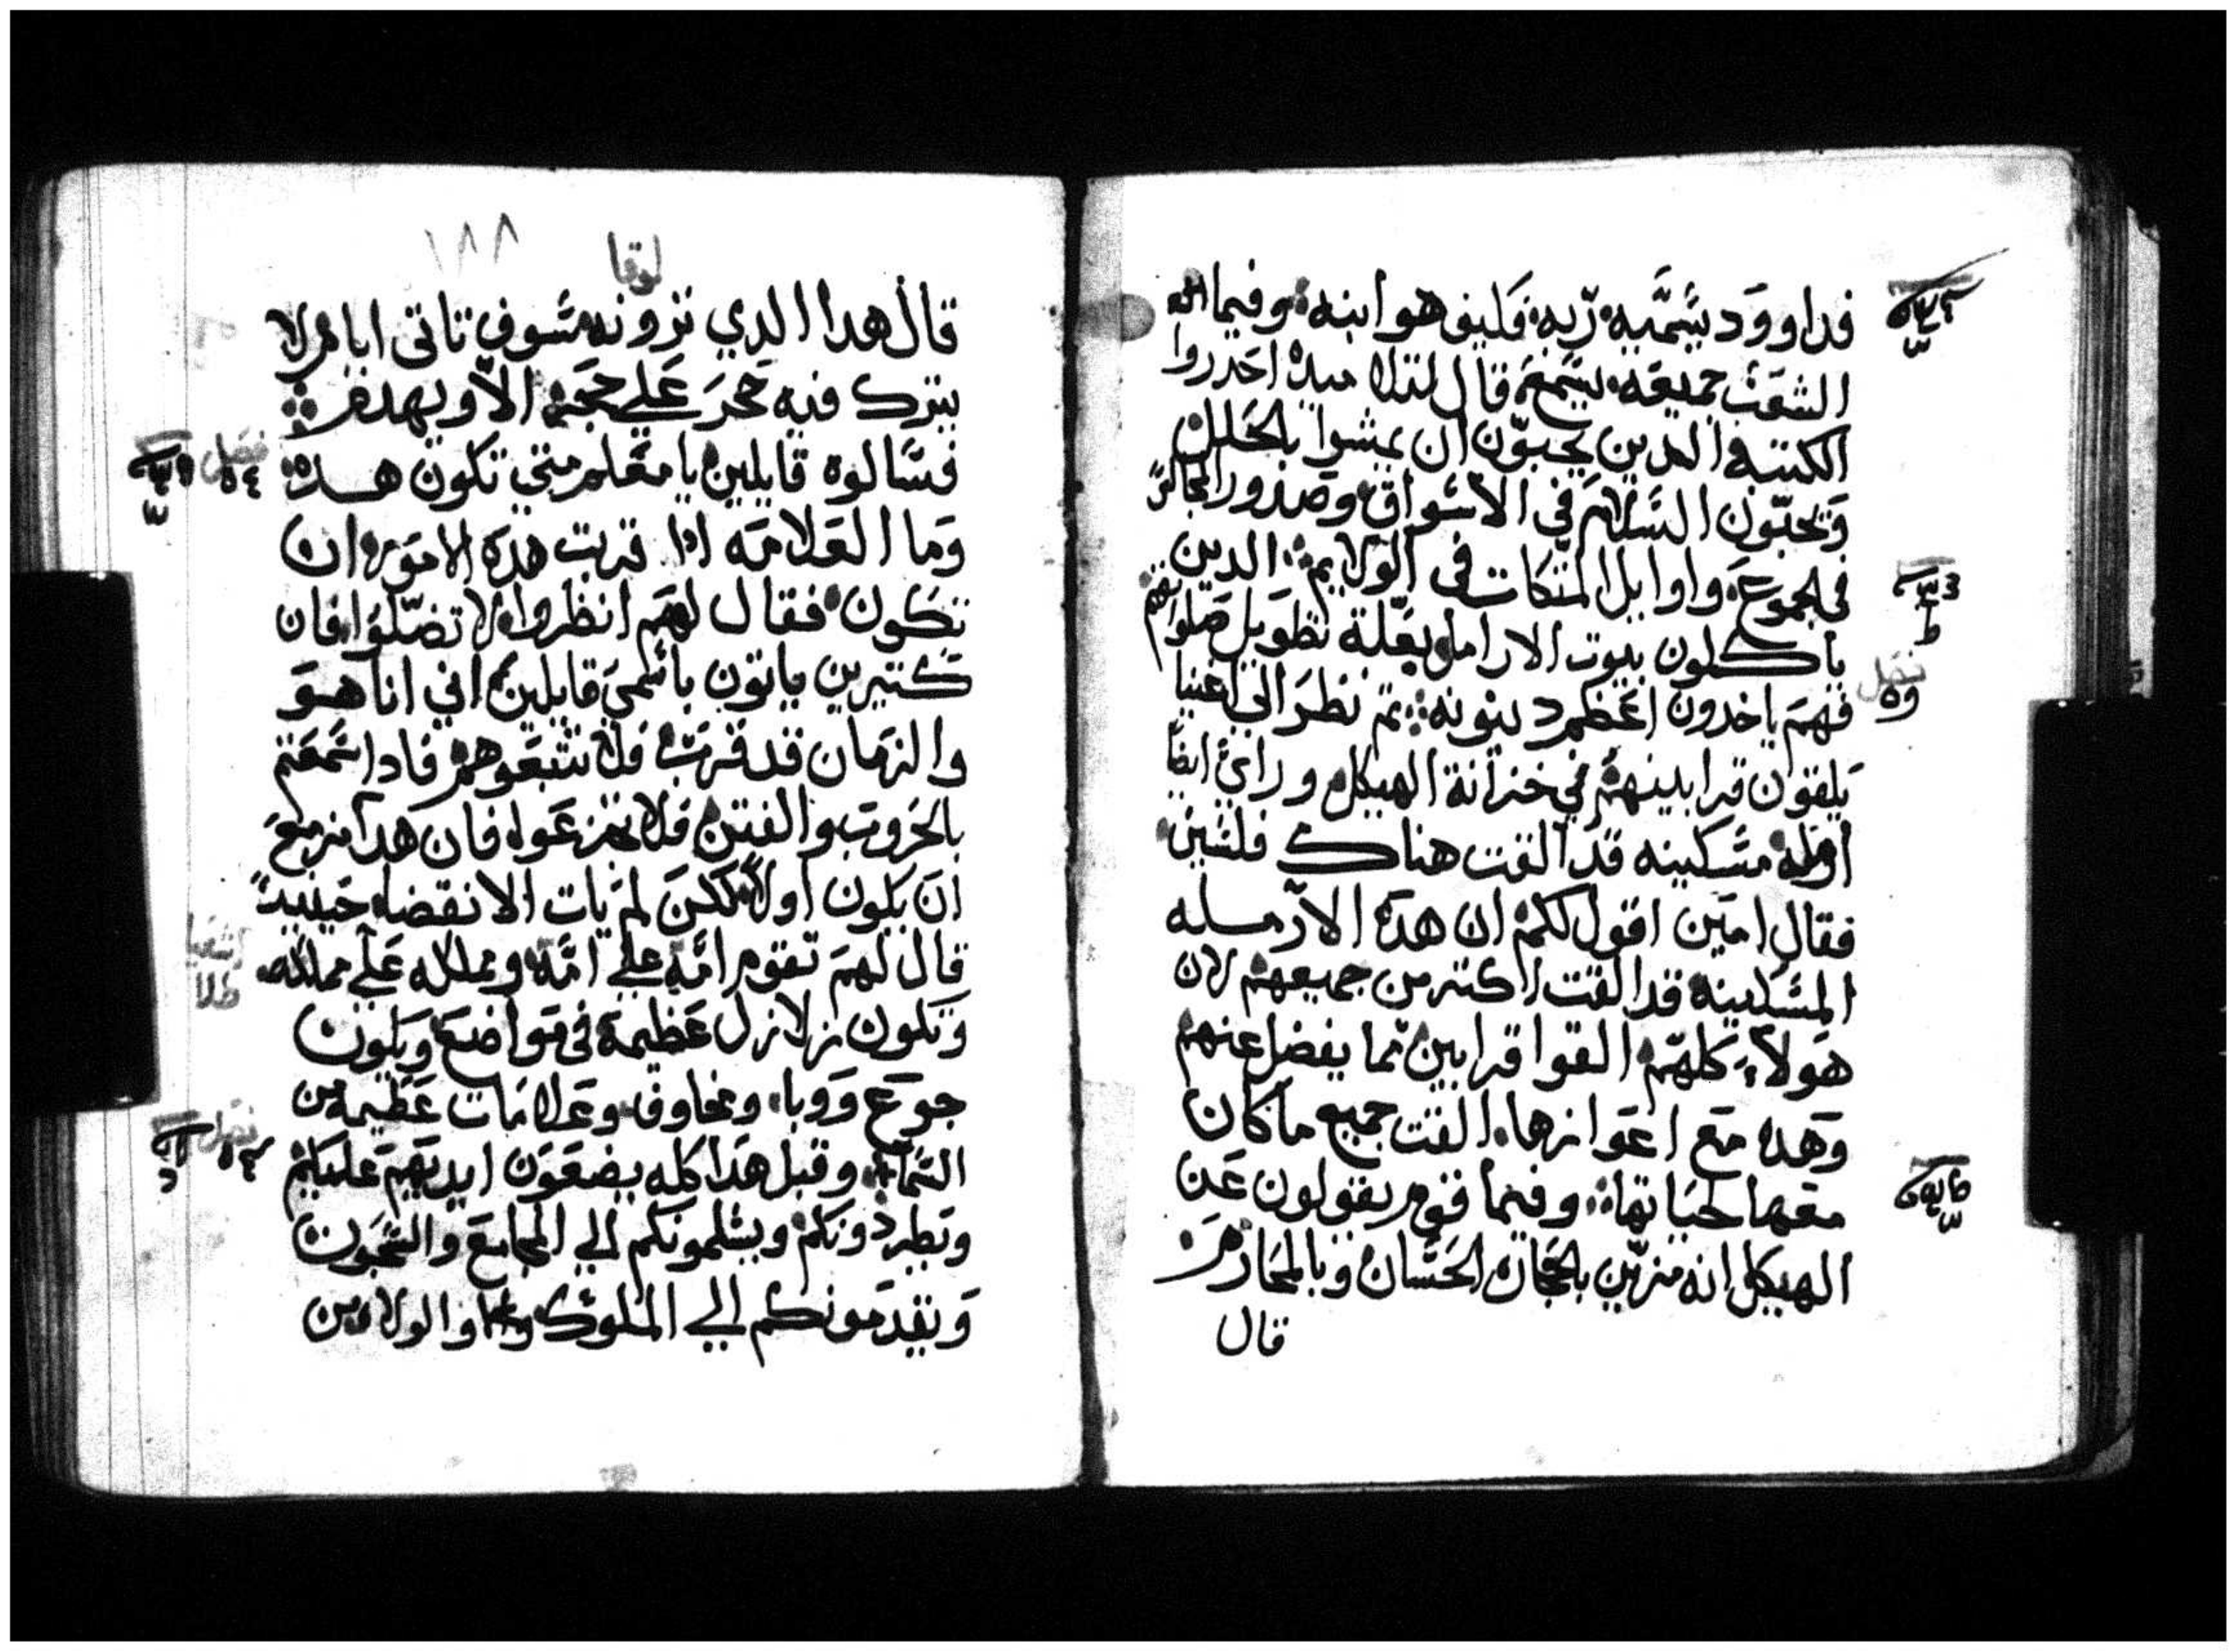 فداوود يسميه ربه فكيف هو ابنه وفيما
الشعب جميعه يسمع قال لتلاميده احدروا
الكتبه الدين يحبون ان يمشوا بالحلل
ويحبون السلام في الاسواق وصدور المجالس
في الجموع واوايل المتكات في الولايم الدين
ياكلون بيوت الارامل بعلة تطويل صلواتهم
فهم ياخدون اعظم دينونه ثم نظر الي اغنيا
يلقون قرابينهم في خزانة الهيكل وراي ايضا
ارمله مسكينه قد القت هناك فلسين
فقال امين اقول لكم ان هده الارمله
المسكينه قد القت اكتر من جميعهم لان
هولاء كلهم القوا قرابين مما يفضل عنهم
وهده مع اعوازها القت جميع ما كان
معها لحياتها وفيما قوم يقولون عن
الهيكل انه مزين بالحجاره الحسان وبالمحارم
قال
فصل
لوقا
١٨٨
قال هدا الدي ترونه سوف تاتي ايام لا
يترك فيه حجر علي حجر الا ويهدم
فسالوه قايلين يا معلم متي تكون هده
وما العلامه ادا قربت هده الامور ان
تكون فقال لهم انظروا لا تضلوا فان
كتيرين ياتون باسمي قايلين اني انا هو
والزمان قد قرب فلا تتبعوهم فادا سمعتم
بالحروب والفتن فلا تجزعوا فان هدا مزمع
ان يكون اولا لكن لم يات الانقضا حينيد
قال لهم تقوم امة علي امة ومملكه علي مملكه
وتكون زلازل عظيمة في مواضع ويكون
جوع ووبا ومخاوف وعلامات عظيمه من
السما وقبل هدا كله يضعون ايديهم عليكم
ويطردونكم ويسلمونكم الي المجامع والسجون
ويقدمونكم الي الملوك والولاه من
فصل
فصل